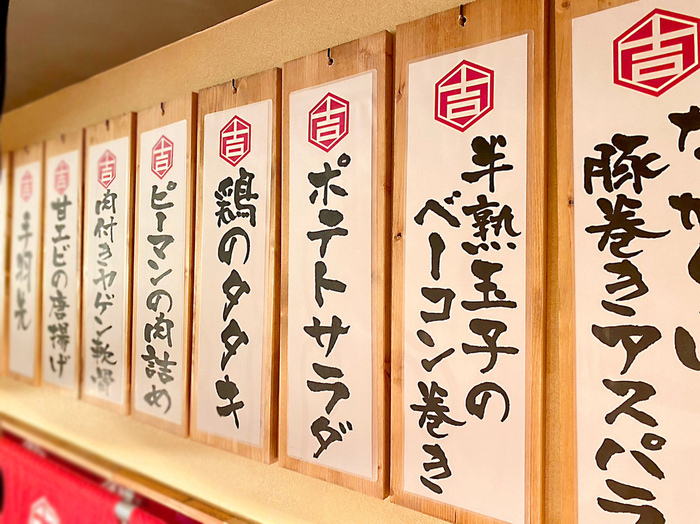 吉
豚巻きアスパラ
吉
半熟玉子の
ベーコン巻き
吉
ポテトサラダ
吉
鶏のタタキ
吉
ピーマンの肉詰め
吉
肉付きヤゲン軟骨
吉
甘エビの唐揚げ
吉
手羽先